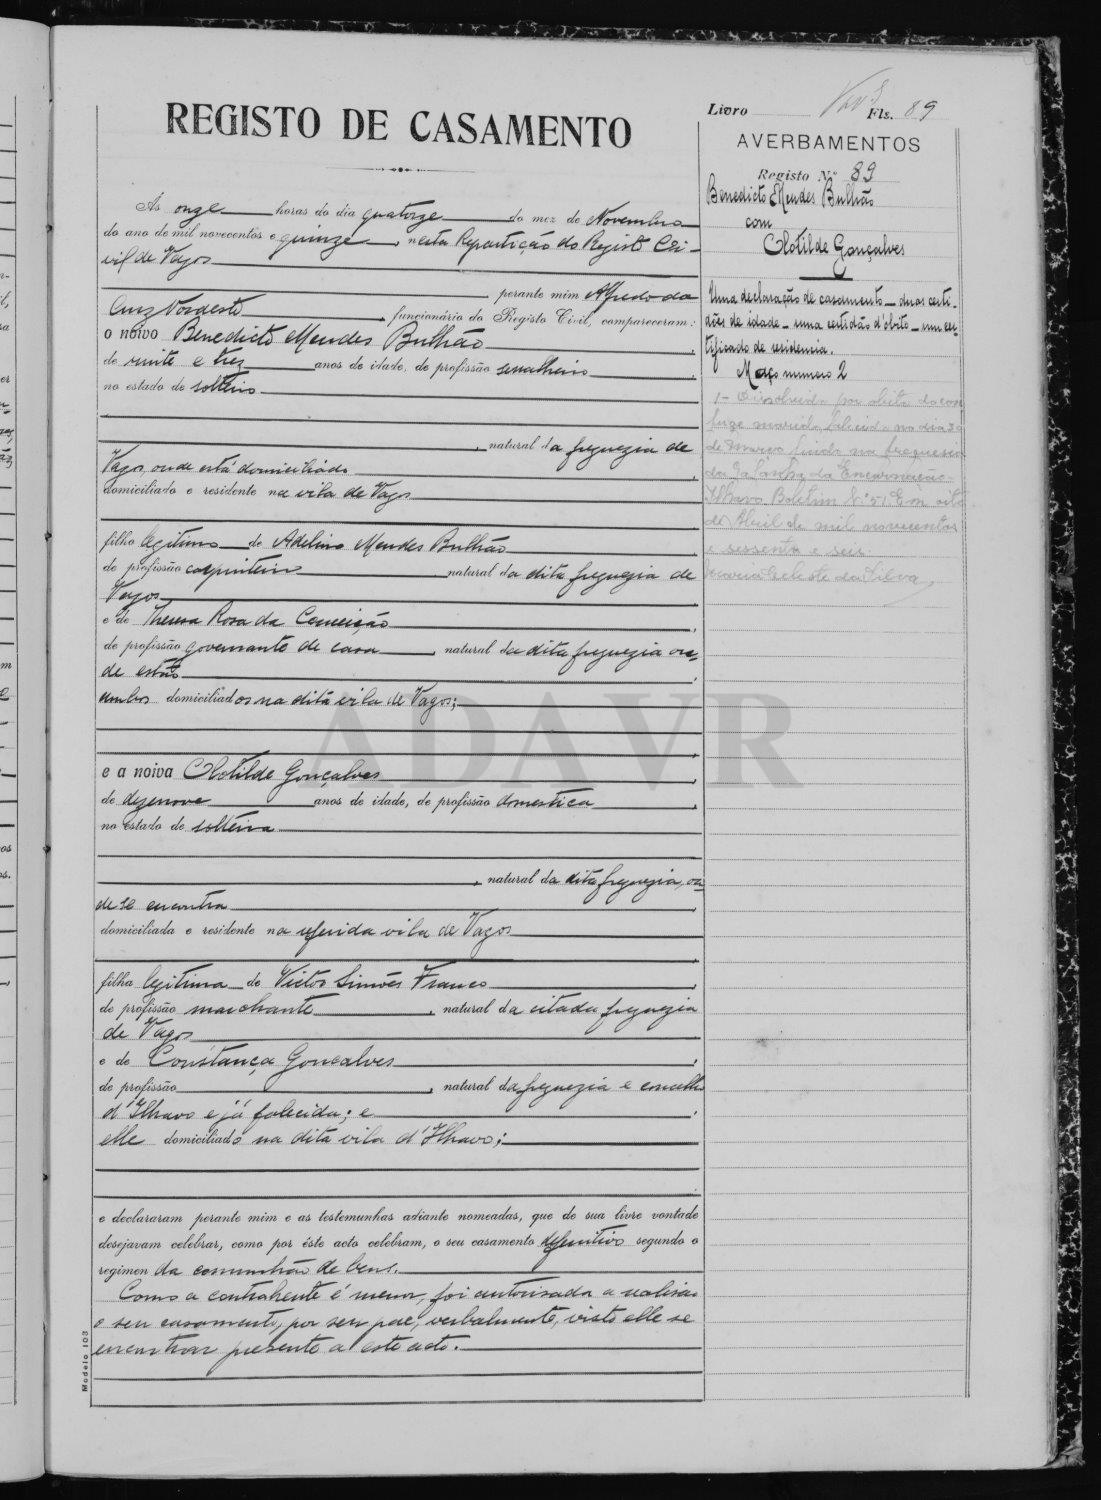 REGISTO DE CASAMENTO
Ás onze horas do dia quatorze do mez de Novembro
do ano de mil novecentos e quinze, nesta Repartição do Registo Ci-
vil de Vagos
perante mim Alfredo da
Cruz Nordeste funcionário do Registo Civil, compareceram:
o noivo Benedicto Mendes Bulhão
de vinte e trez anos de idade, de profissão serralheiro
no estado de solteiro
, natural da freguezia de
Vagos, onde está domiciliado
domiciliado e residente na vila de Vagos
filho legitimo de Adelino Mendes Bulhão
de profissão carpinteiro natural da dita freguezia de
Vagos
e de Theresa Rosa da Conceição
de profissão governante de casa, natural da dita freguezia on-
de estão
ambos domiciliados na dita vila de Vagos;
e a noiva Clotilde Gonçalves
de dezenove anos de idade, de profissão domestica
no estado de solteira
, natural da dita freguezia, on-
de se encontra
domiciliada e residente na referida vila de Vagos
filha legitima de Victor Simões Franco
de profissão marchante, natural da citada freguezia
de Vagos
e de Constança Gonçalves
de profissão , natural da freguezia e concelho
d'Ilhavo e já falecida; e
elle domiciliado na dita vila d'Ilhavo;
e declararam perante mim e as testemunhas adiante nomeadas, que de sua livre vontade
desejavam celebrar, como por êste acto celebram, o seu casamento definitivo segundo o
regimen da comunhão de bens.
Como a contrahente é menor, foi autorisada a realisar
o seu casamento, por seu pae, verbalmente, visto elle se
encontrar presente a este acto.
Modelo 103
Livro Fls. 89
AVERBAMENTOS
Registo N.º 89
Benedicto Mendes Bulhão
com
Clotilde Gonçalves
Uma declaração de casamento - duas certi-
dões de idade - uma certidão d'obito - um cer-
tificado de residencia.
Maço numero 2
1- Dissolvido por obito do con
juge marido, falecido no dia 30
de Março findo na freguesia
da
Ilhavo. Boletim N.º 51. Em oito
de Abril de mil novecentos
e sessenta e seis.
Maria Celeste da Silva
ADAVR